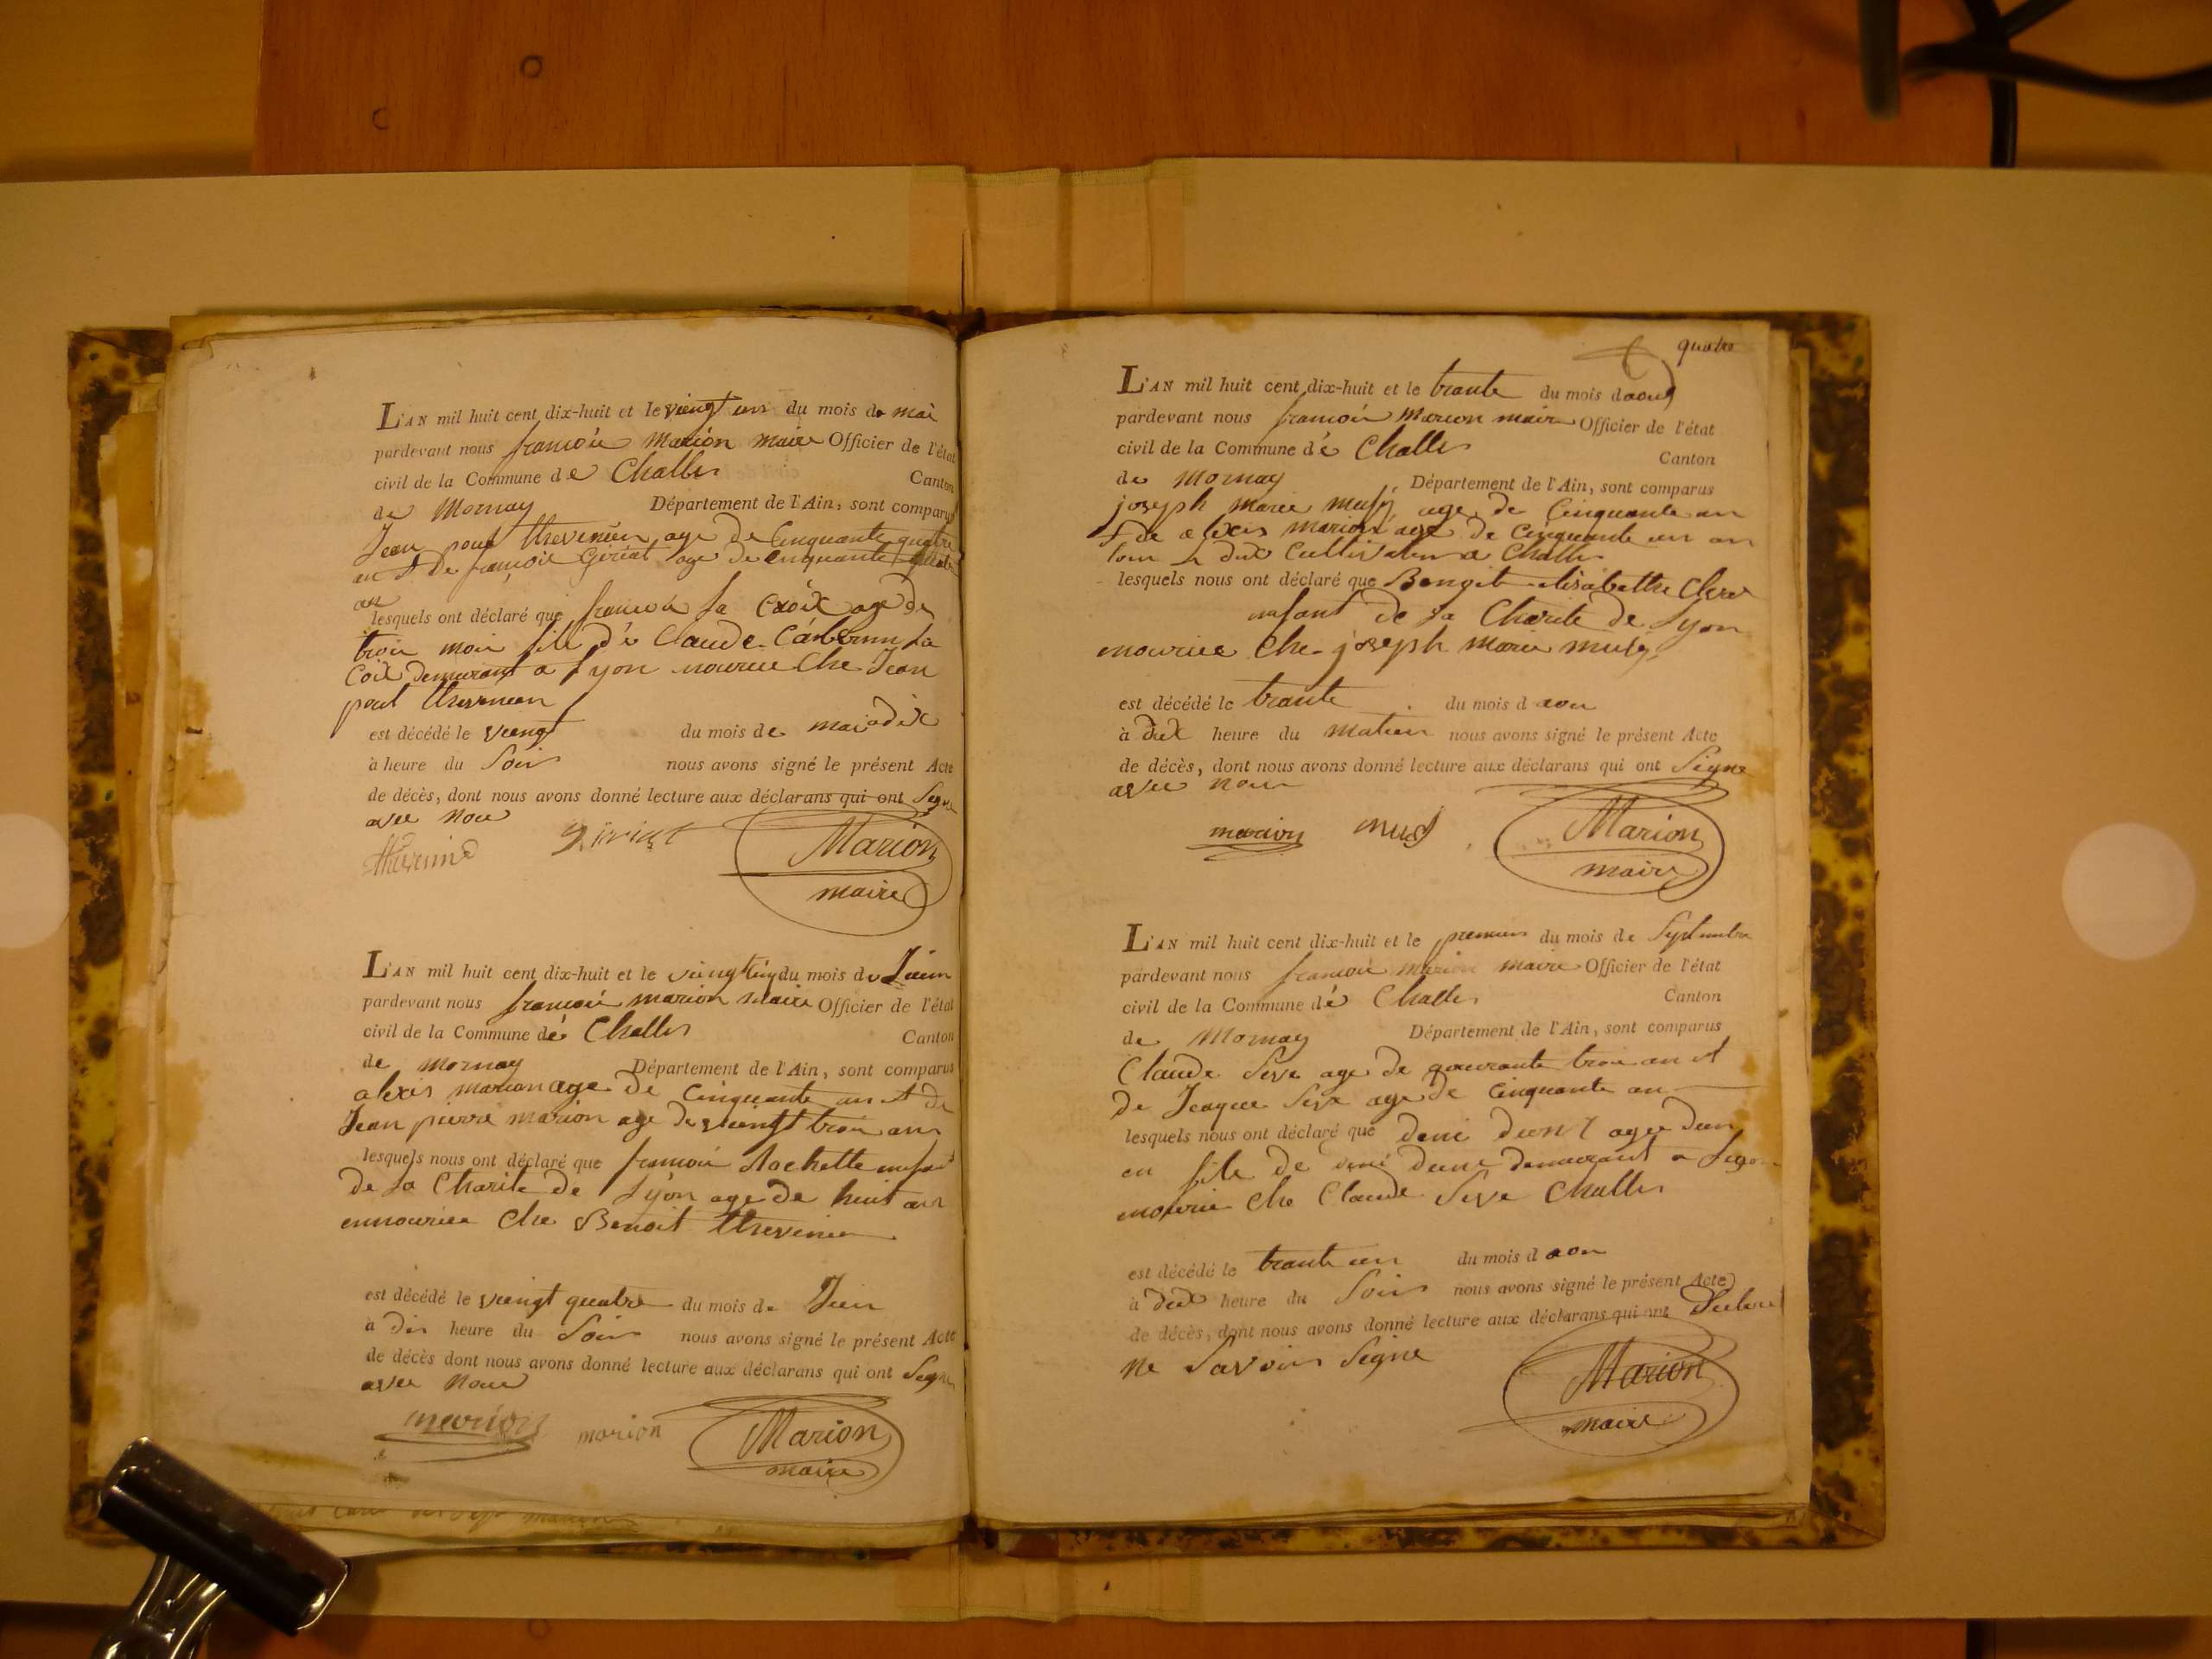 L'AN mil huit cent dix-huit et le viengt un du mois de mai
pardevant nous françois marion maire Officier de l'état
civil de la Commune de Challes
Canton
de Mornay Département de l'Ain, sont comparus
Jean poul thevenien age de Cinquante quatre
an et De françois Giriat age de cinquante quatre
an
lesquels ont déclaré que francois la Croix age de
trois mois fils dé Claude
Coix demurant a lyon nourice Che Jean
poul thevenien
est décédé le viengt du mois de mai a dix
à heure du Soir nous avons signé le présent Acte
de décès, dont nous avons donné lecture aux déclarans qui ont Signe
avec nous
Giriat Marion
maire
L'AN mil huit cent dix-huit et le du mois de Juin
pardevant nous francois marion maire Officier de l'état
civil de la Commune dé Challes
Canton
de mornay Département de l'Ain, sont comparus
alexis marion age de Cinquante an et de
Jean pierre marion age de viengt trois ans
lesquels nous ont déclaré que francois Rochette enfant
De la Charite de Lyon age de huit an
ennourice Che Benoit thevenien
est décédé le viengt quatre du mois de Juin
à dis heure du Soir nous avons signé le présent Acte
de décès dont nous avons donné lecture aux déclarans qui ont Signe
avec nous
marion marion Marion
maire
quatre
L'AN mil huit cent dix-huit et le trante du mois daout
pardevant nous francois marion maire Officier de l'état
civil de la Commune dé Challes
Canton
de Mornay Département de l'Ain, sont comparus
joseph marie musy age de Cinquante an
et de alexis marion age de cinquante un an
tous Cultivateur a Challes
lesquels nous ont déclaré que Benoite elisabethe
enfant de la Charite de Lyon
enourice Che joseph marie musy
est décédé le trante du mois d aou
à dix heure du matien nous avons signé le présent Acte
de décès, dont nous avons donné lecture aux déclarans qui ont Signe
avec nous
marion musy Marion
maire
L'AN mil huit cent dix-huit et le premier du mois de Septembre
pardevant nous francois marion maire Officier de l'état
civil de la Commune dé Challes
Canton
de Mornay Département de l'Ain, sont comparus
Claude Seve age de quarante trois an et
de Jaque Seve age de cinquante an
lesquels nous ont déclaré que age dun
an fils de demurant a Lyon
enourie Che Claude Seve Challes
est décédé le trante un du mois d aou
à dix heure du Soir nous avons signé le présent Acte
de décès, dont nous avons donné lecture aux déclarans qui ont
ne Savoir Signe
Marion
maire